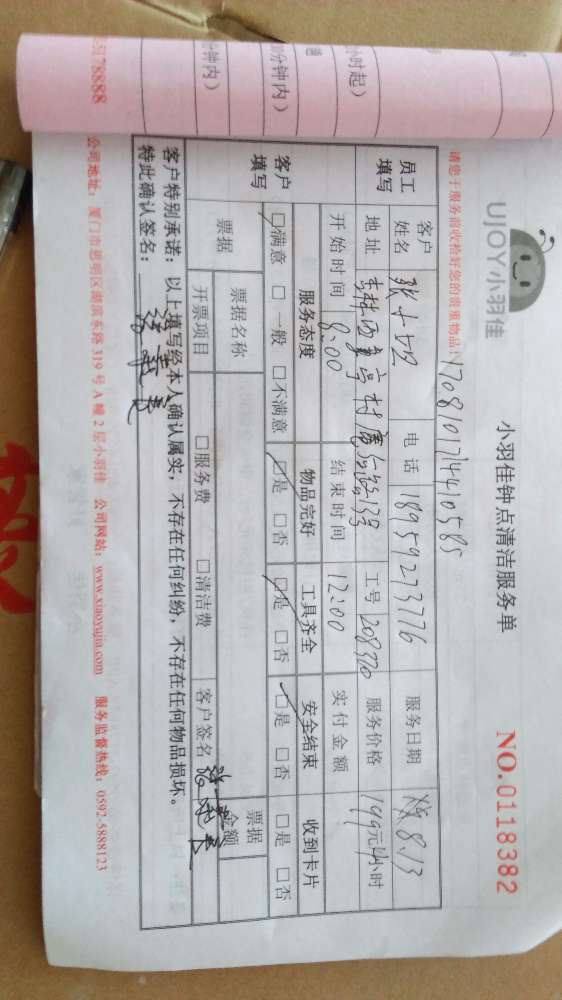 小时起)
30分钟内)
分钟内)
UJOY小羽佳
小羽佳钟点清洁服务单
NO.0118382
请您于服务前收检好您的贵重物品!
170810174410585
员工填写
客户姓名
电话 18959273776
服务日期 8.13
地址
工号 208370
服务价格 199元4小时
开始时间 8:00
结束时间 12:00
实付金额
客户填写
服务态度 物品完好 工具齐全 安全结束 收到卡片
□满意 □一般 □不满意 □是 □否 □是 □否 □是 □否 □是 □否
票据 票据名称 票据金额
开票项目 □服务费 □清洁费 客户签名
客户特别承诺:以上填写经本人确认属实,不存在任何纠纷,不存在任何物品损坏。
特此确认签名:
5178888 公司地址:厦门市思明区湖滨东路319号A幢2层小羽佳 公司网站:www.xiaoyujia.com 服务监督热线:0592-5888123